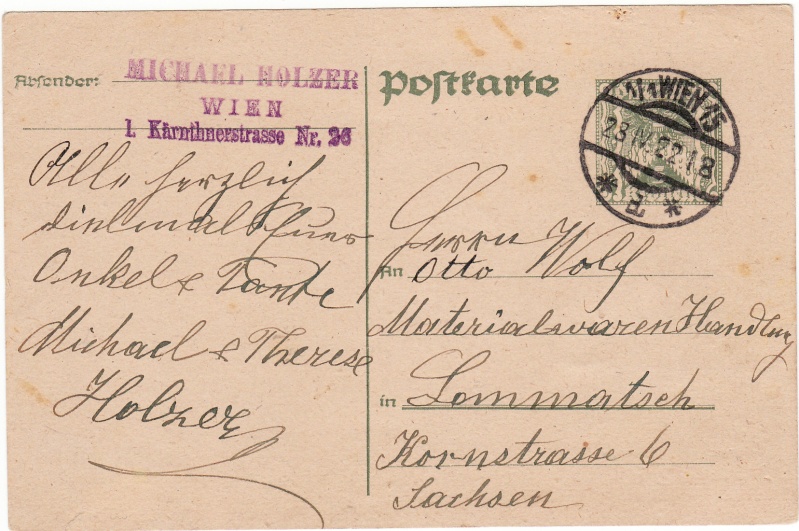 Absender:
MICHAEL HOLZER
WIEN
1. Kärnthnerstrasse Nr. 36
Alle herzlich
Onkel & Tante
Michael & Therese
Holzer
Postkarte
1/1 WIEN 15
23.IV.22.18
Herrn
An Otto Wolf
Materialwaren Handlung
in Lommatsch
Kornstrasse 6
Sachsen